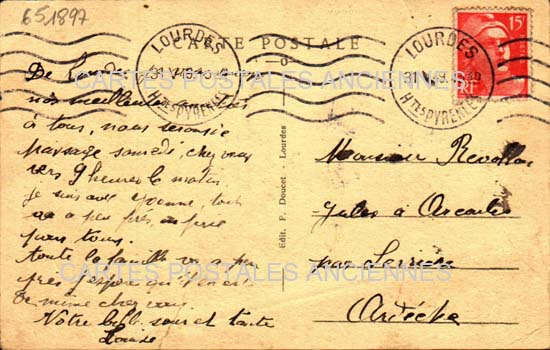 651897
CARTE POSTALE
LOURDES
Htes PYRENEES
LOURDES
31
Htes PYRENEES
15f
RF
CARTES POSTALES ANCIENNES
De Lourdes
nos meilleurs
à tous, nous serons
passage samedi, chez vous
vers 9 heures le matin
je suis avec Yvonne, tout
va a peu près
pour tous.
toute la famille va a peu
près j'espère qu'il en est
de même chez vous
Votre belle sœur et tante
Louise
Edit. F. Doucet - Lourdes
Monsieur
Jules à
par
Ardèche
CARTES POSTALES ANCIENNES